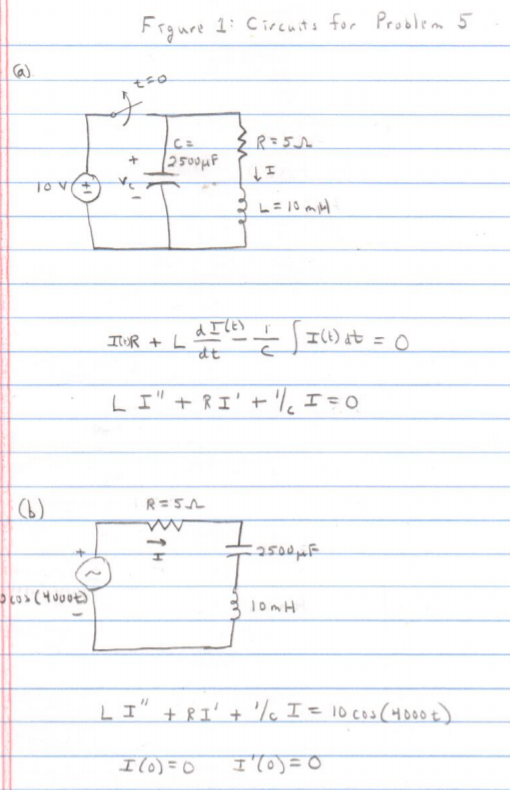 Figure 1: Circuits for Problem 5
(a)
t=0
C=
2500μF
R=5Ω
+
10 V
+
Vc
-
↓ I
L = 10 mH
I(t)R + L dI(t)/dt - 1/C ∫ I(t) dt = 0
L I" + R I' + 1/C I = 0
(b)
R=5Ω
→
I
+
2500μF
~
cos(4000t)
-
10mH
L I" + R I' + 1/C I = 10 cos(4000t)
I(0)=0 I'(0)=0